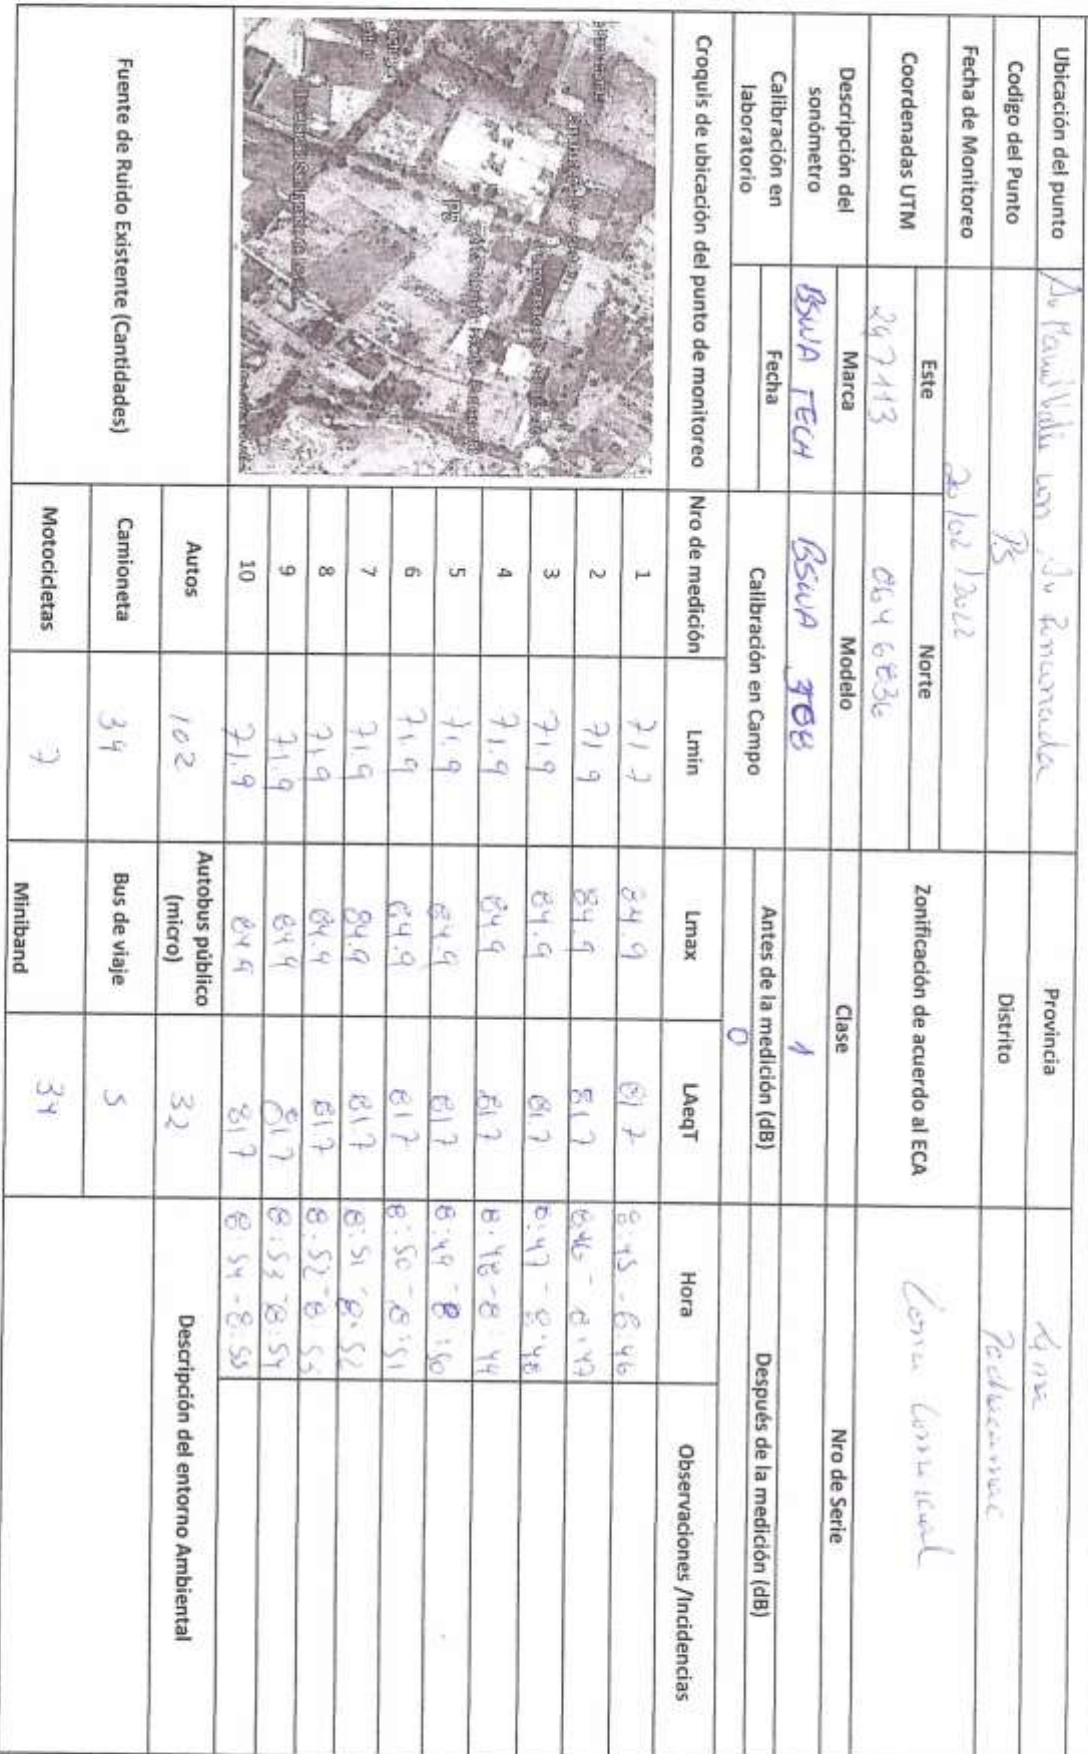 Ubicación del punto Av Manuel Valle con Av Provincia Lima
Codigo del Punto P5 Distrito Pachacamac
Fecha de Monitoreo 20/02/2022
Coordenadas UTM Este Norte Zonificación de acuerdo al ECA Zona Comercial
297113
Descripción del sonómetro Marca Modelo Clase Nro de Serie
BSWA TECH BSWA 308 1
Calibración en laboratorio Fecha Calibración en Campo Antes de la medición (dB) Después de la medición (dB)
0
Croquis de ubicación del punto de monitoreo Nro de medición Lmin Lmax LAeqT Hora Observaciones /Incidencias
P5
1 71.7 84.9 81 7 8:45 - 8:46
2 71 9 84.9 81 7 8:46 - 8:47
3 71 9 84.9 81.7 8:47 - 8:48
4 71.9 84 9 81.7 8:48 - 8:49
5 71.9 84.9 81 7 8:49 - 8:50
6 71.9 84.9 81 7 8:50 - 8:51
7 71.9 84.9 81 7 8:51 - 8:52
8 71.9 84.9 81 7 8:52 - 8 53
9 71.9 84 9 81 7 8:53 - 8:54
10 71.9 84 9 81 7 8:54 - 8:55
Fuente de Ruido Existente (Cantidades) Autos 102 Autobus público (micro) 32 Descripción del entorno Ambiental
Camioneta 34 Bus de viaje 5
Motocicletas 7 Miniband 34